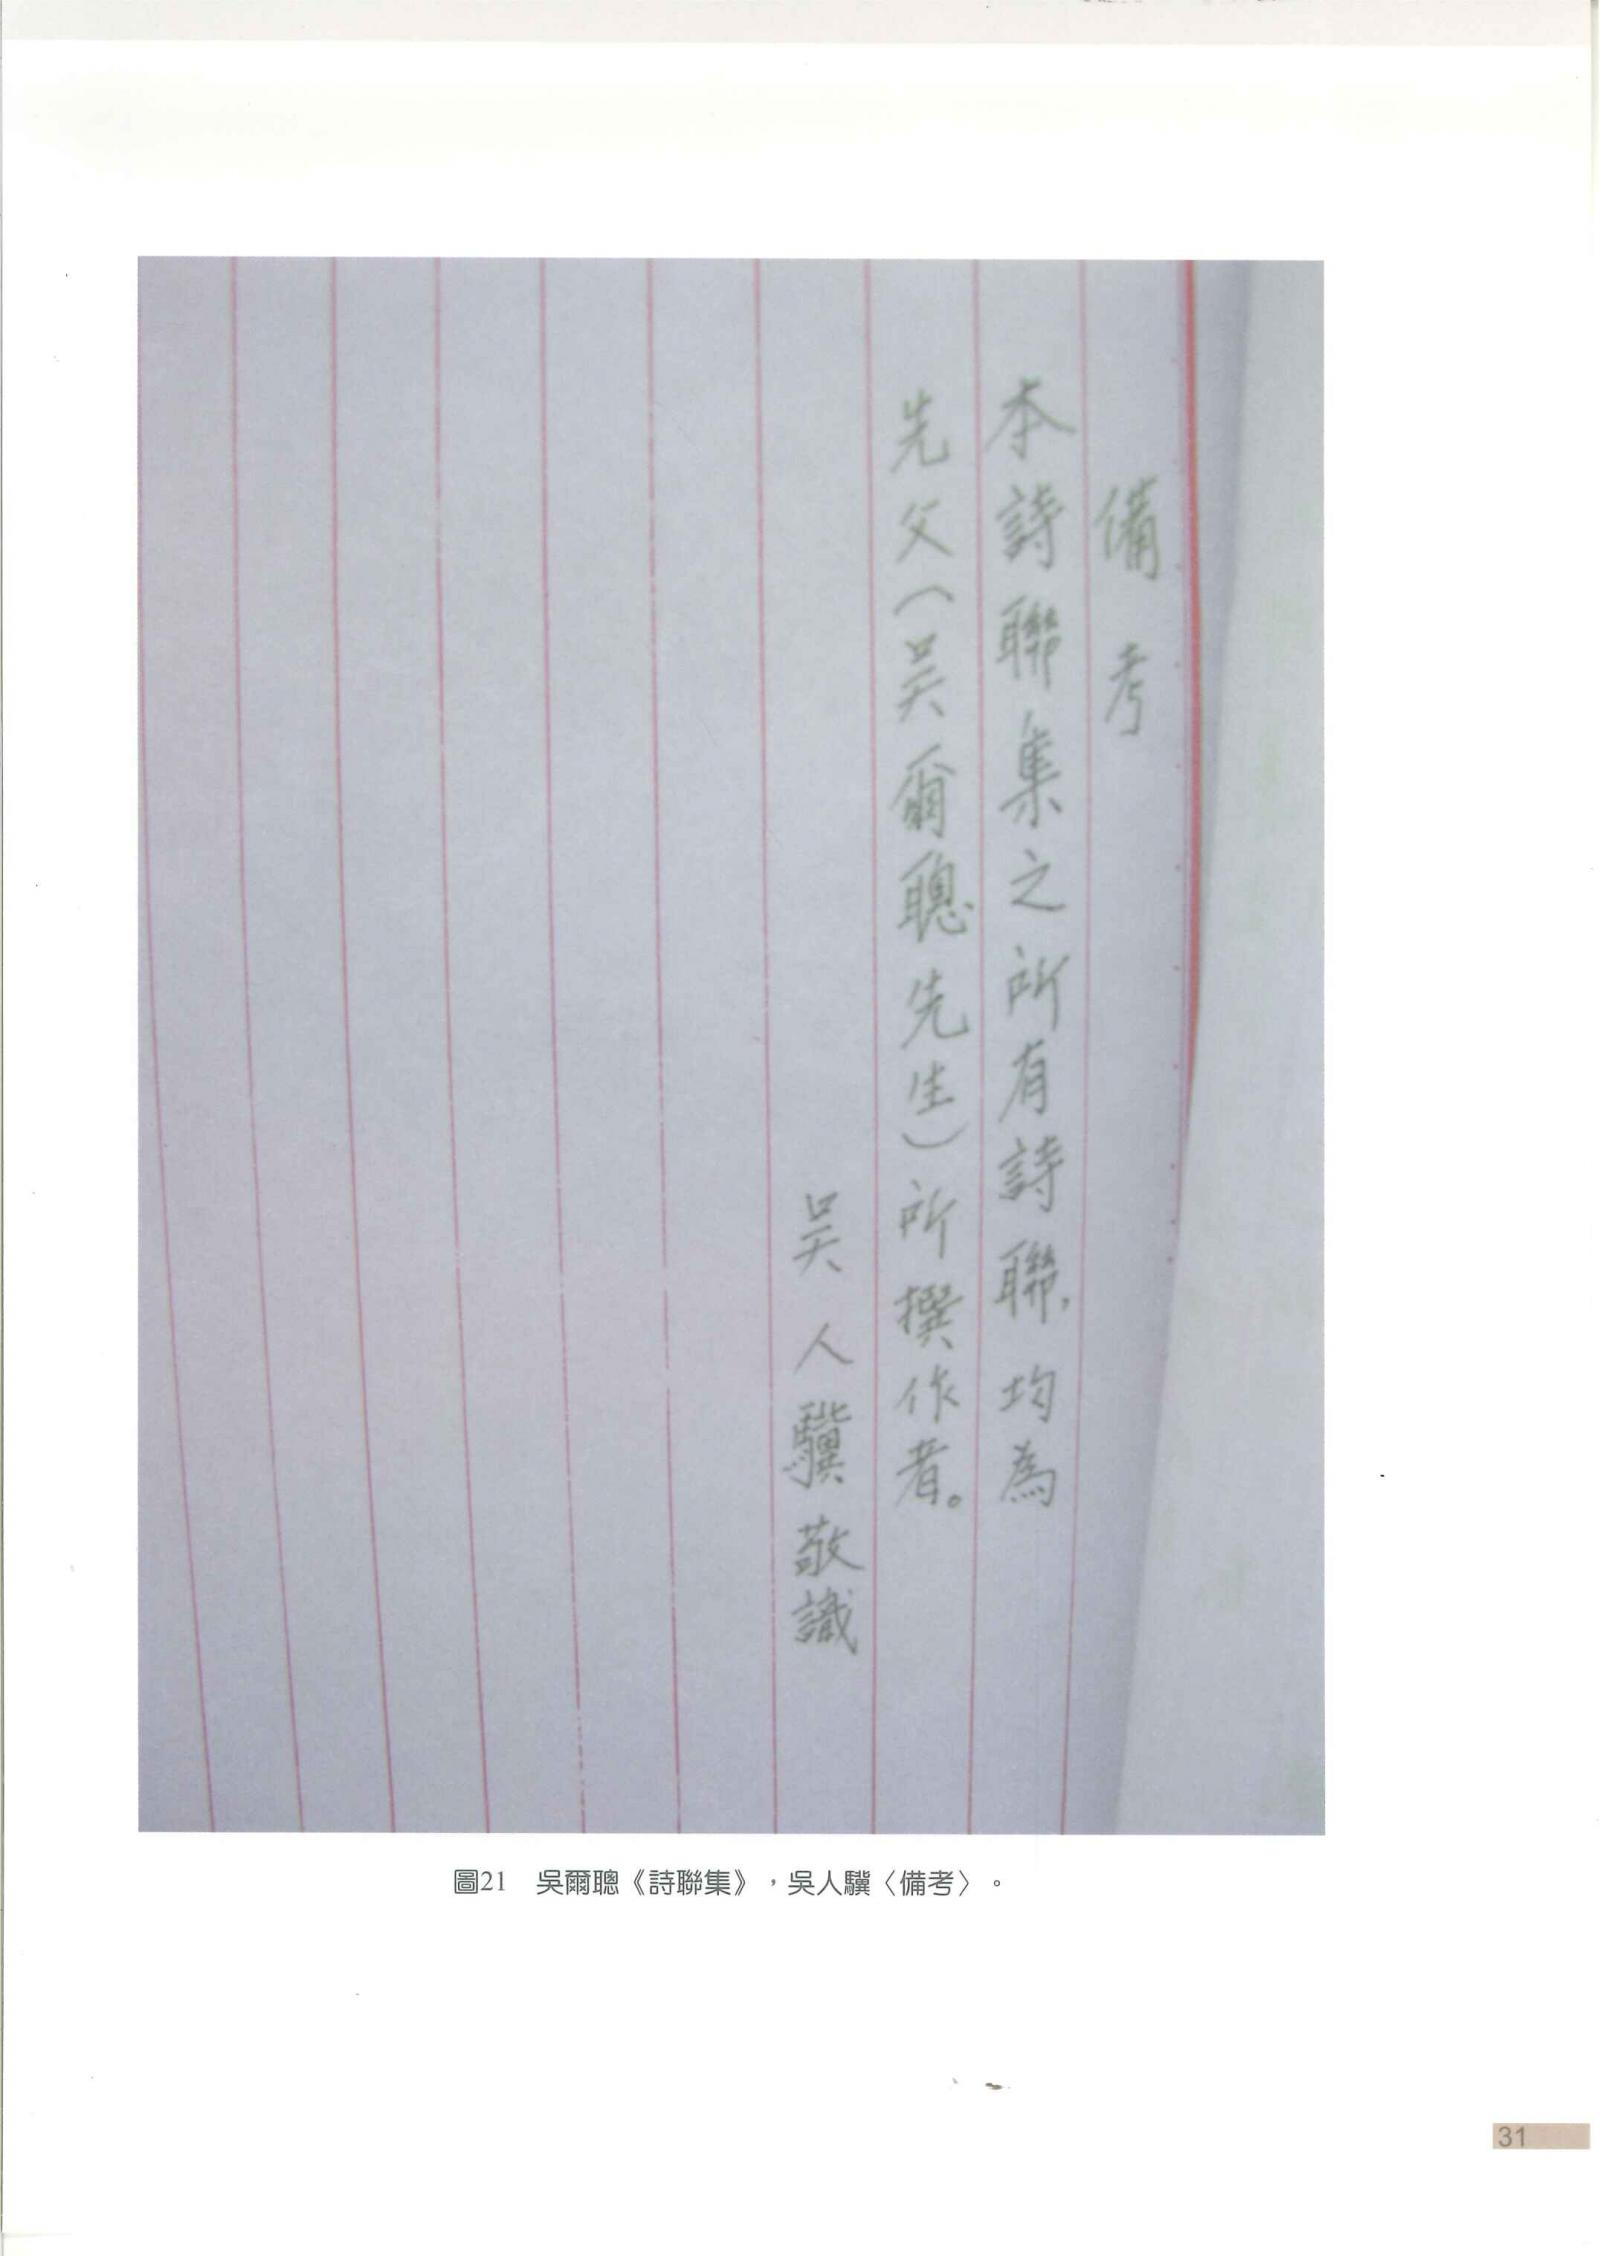 備考
本詩聯集之所有詩聯，均為
先父（吳爾聰先生）所撰作者。
吳人驥敬識
圖21 吳爾聰《詩聯集》，吳人驥〈備考〉。
31